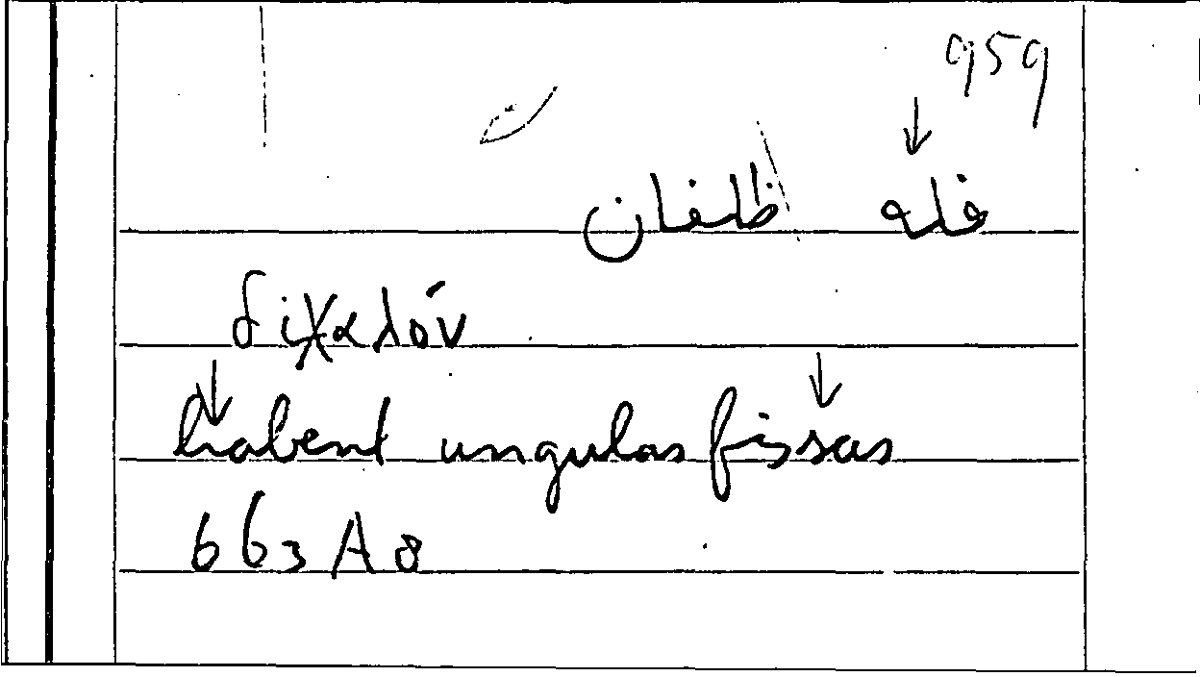 959
فله ظلفان
διχαλόν
habent ungulas fissas
663 A 8